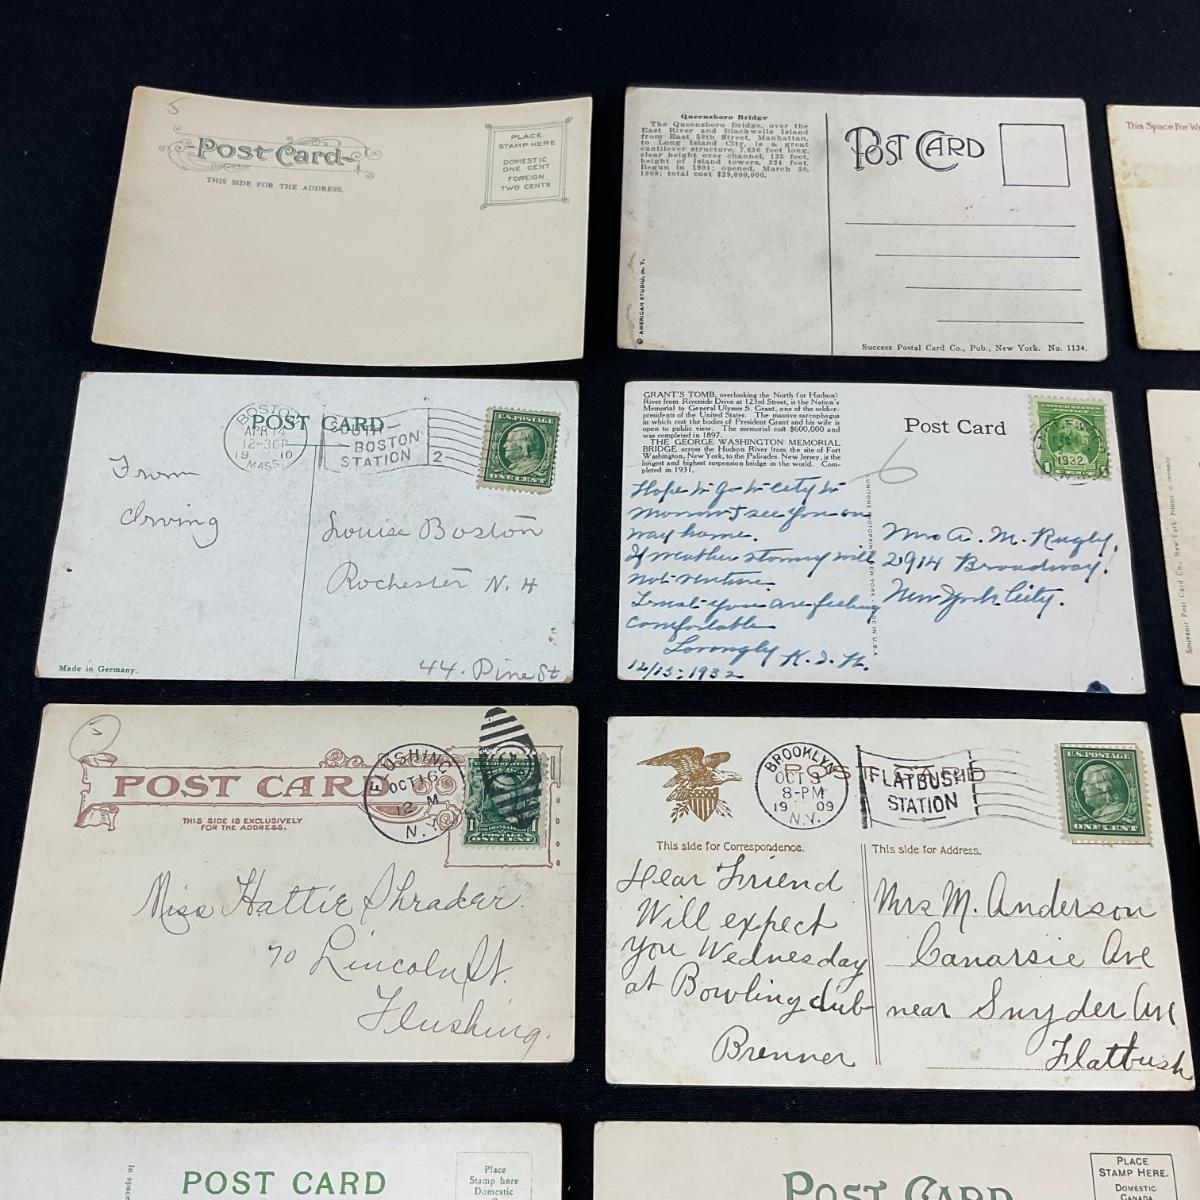 5
Post Card
THIS SIDE FOR THE ADDRESS.
PLACE
STAMP HERE
DOMESTIC
ONE CENT
FOREIGN
TWO CENTS
Queensboro Bridge
The Queensboro Bridge, over the
East River and Blackwells Island
from East 59th Street, Manhattan,
to Long Island City, is a great
cantilever structure, 7,636 feet long,
clear height over channel, 135 feet,
height of Island towers, 324 feet.
Begun in 1901; opened, March 30,
1909; total cost $25,000,000.
POST CARD
© AMERICAN STUDIO, N. Y.
Success Postal Card Co., Pub., New York. No. 1134.
This Space For Wr
BOSTON
APR
12-30P
19 10
MASS.
POST CARD
BOSTON
STATION
2
U.S. POSTAGE
ONE CENT
From
Irving
Louise Boston
Rochester N. H
44. Pine St
Made in Germany.
GRANT'S TOMB, overlooking the North (or Hudson)
River from Riverside Drive at 123rd Street, is the Nation's
Memorial to General Ulysses S. Grant, one of the soldier-
presidents of the United States. The massive sarcophagus
in which rest the bodies of President Grant and his wife is
open to public view. The memorial cost $600,000 and
was completed in 1897.
THE GEORGE WASHINGTON MEMORIAL
BRIDGE, across the Hudson River from the site of Fort
Washington, New York, to the Palisades, New Jersey, is the
longest and highest suspension bridge in the world. Com-
pleted in 1931.
Post Card
6
1932
1
Hope to go to city to
morrow & see you on
way home.
If weather stormy will
not venture
Trust you are feeling
comfortable
Lovingly K. D. H.
12/13; 1932
LUMITONE PHOTOPRINT NEW YORK · MADE IN U.S.A.
Mrs A. M. Rugby,
2914 Broadway,
New York City.
Souvenir Post Card Co., New York
5
POST CARD
THIS SIDE IS EXCLUSIVELY
FOR THE ADDRESS.
FLUSHING
OCT 16
12 M
N.Y.
1
POSTAGE
ONE CENT
Miss Hattie Shrader.
70 Lincoln St.
Flushing.
BROOKLYN
OCT 3
8-PM
19 09
N.Y.
POST CARD
FLATBUSH
STATION
U.S. POSTAGE
ONE CENT
This side for Correspondence.
This side for Address.
Dear Friend
Will expect
you Wednesday
at Bowling club
Brenner
Mrs M. Anderson
Canarsie Ave
near Snyder Ave
Flatbush
In space
POST CARD
Place
Stamp here
Domestic
POST CARD
PLACE
STAMP HERE.
DOMESTIC
CANADA